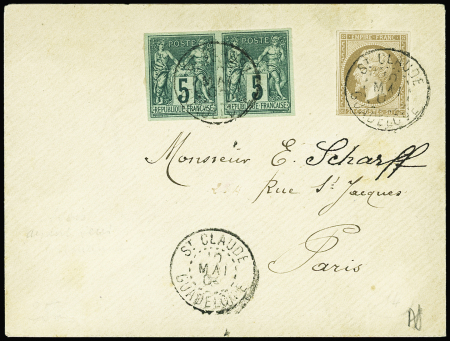 POSTE POSTE
5 5
REPUBLIQUE FRANÇAISE REPUBLIQUE FRANÇAISE
EMPIRE FRANC
ST CLAUDE
MAI
GUADELOUPE
Monsieur E. Scharff
Rue St Jacques
Paris
ST CLAUDE
MAI
GUADELOUPE